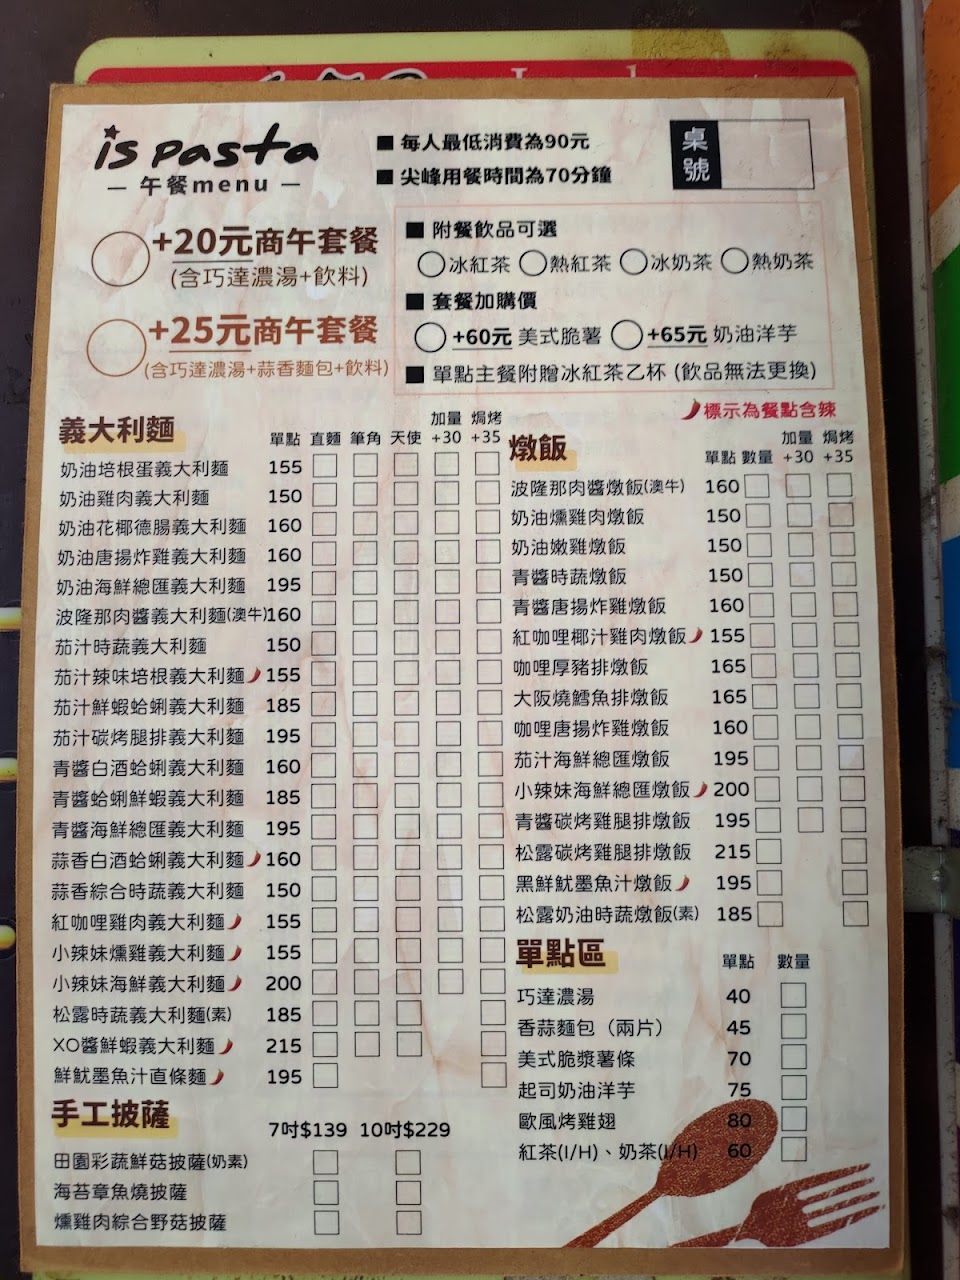 is pasta
— 午餐menu —
■ 每人最低消費為90元
■ 尖峰用餐時間為70分鐘
桌號
+20元商午套餐
(含巧達濃湯+飲料)
+25元商午套餐
(含巧達濃湯+蒜香麵包+飲料)
■ 附餐飲品可選
冰紅茶 熱紅茶 冰奶茶 熱奶茶
■ 套餐加購價
+60元 美式脆薯 +65元 奶油洋芋
■ 單點主餐附贈冰紅茶乙杯 (飲品無法更換)
標示為餐點含辣
義大利麵 單點 直麵 筆角 天使 加量+30 焗烤+35
奶油培根蛋義大利麵 155
奶油雞肉義大利麵 150
奶油花椰德腸義大利麵 160
奶油唐揚炸雞義大利麵 160
奶油海鮮總匯義大利麵 195
波隆那肉醬義大利麵(澳牛)160
茄汁時蔬義大利麵 150
茄汁辣味培根義大利麵 155
茄汁鮮蝦蛤蜊義大利麵 185
茄汁碳烤腿排義大利麵 195
青醬白酒蛤蜊義大利麵 160
青醬蛤蜊鮮蝦義大利麵 185
青醬海鮮總匯義大利麵 195
蒜香白酒蛤蜊義大利麵 160
蒜香綜合時蔬義大利麵 150
紅咖哩雞肉義大利麵 155
小辣妹燻雞義大利麵 155
小辣妹海鮮義大利麵 200
松露時蔬義大利麵(素) 185
XO醬鮮蝦義大利麵 215
鮮魷墨魚汁直條麵 195
手工披薩 7吋$139 10吋$229
田園彩蔬鮮菇披薩(奶素)
海苔章魚燒披薩
燻雞肉綜合野菇披薩
燉飯 單點 數量 加量+30 焗烤+35
波隆那肉醬燉飯(澳牛) 160
奶油燻雞肉燉飯 150
奶油嫩雞燉飯 150
青醬時蔬燉飯 150
青醬唐揚炸雞燉飯 160
紅咖哩椰汁雞肉燉飯 155
咖哩厚豬排燉飯 165
大阪燒鱈魚排燉飯 165
咖哩唐揚炸雞燉飯 160
茄汁海鮮總匯燉飯 195
小辣妹海鮮總匯燉飯 200
青醬碳烤雞腿排燉飯 195
松露碳烤雞腿排燉飯 215
黑鮮魷墨魚汁燉飯 195
松露奶油時蔬燉飯(素) 185
單點區 單點 數量
巧達濃湯 40
香蒜麵包（兩片） 45
美式脆漿薯條 70
起司奶油洋芋 75
歐風烤雞翅 80
紅茶(I/H)、奶茶(I/H) 60